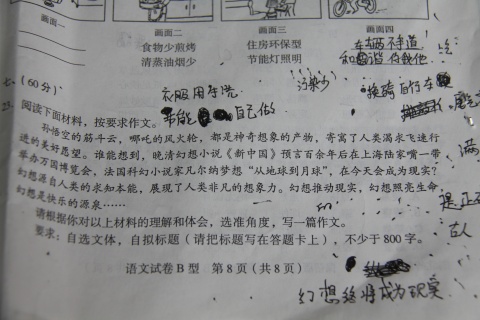 画面一
画面二
画面三
画面四
食物少煎烤
住房环保型
清蒸油烟少
节能灯照明
污染少
换骑自行车
衣服用手洗
节能
自己做
七、(60分)
23.阅读下面材料，按要求作文。
孙悟空的筋斗云，哪吒的风火轮，都是神奇想象的产物，寄寓了人类渴求飞速行
进的美好愿望。谁能想到，晚清幻想小说《新中国》预言百余年后在上海陆家嘴一带
举办万国博览会，法国科幻小说家凡尔纳梦想“从地球到月球”，在今天会成为现实？
幻想源自人类的求知本能，展现了人类非凡的想象力。幻想推动现实，幻想照亮生命，
幻想是快乐的源泉……
请根据你对以上材料的理解和体会，选准角度，写一篇作文。
要求：自选文体，自拟标题（请把标题写在答题卡上），不少于800字。
语文试卷B型 第8页(共8页)
幻想终将成为现实